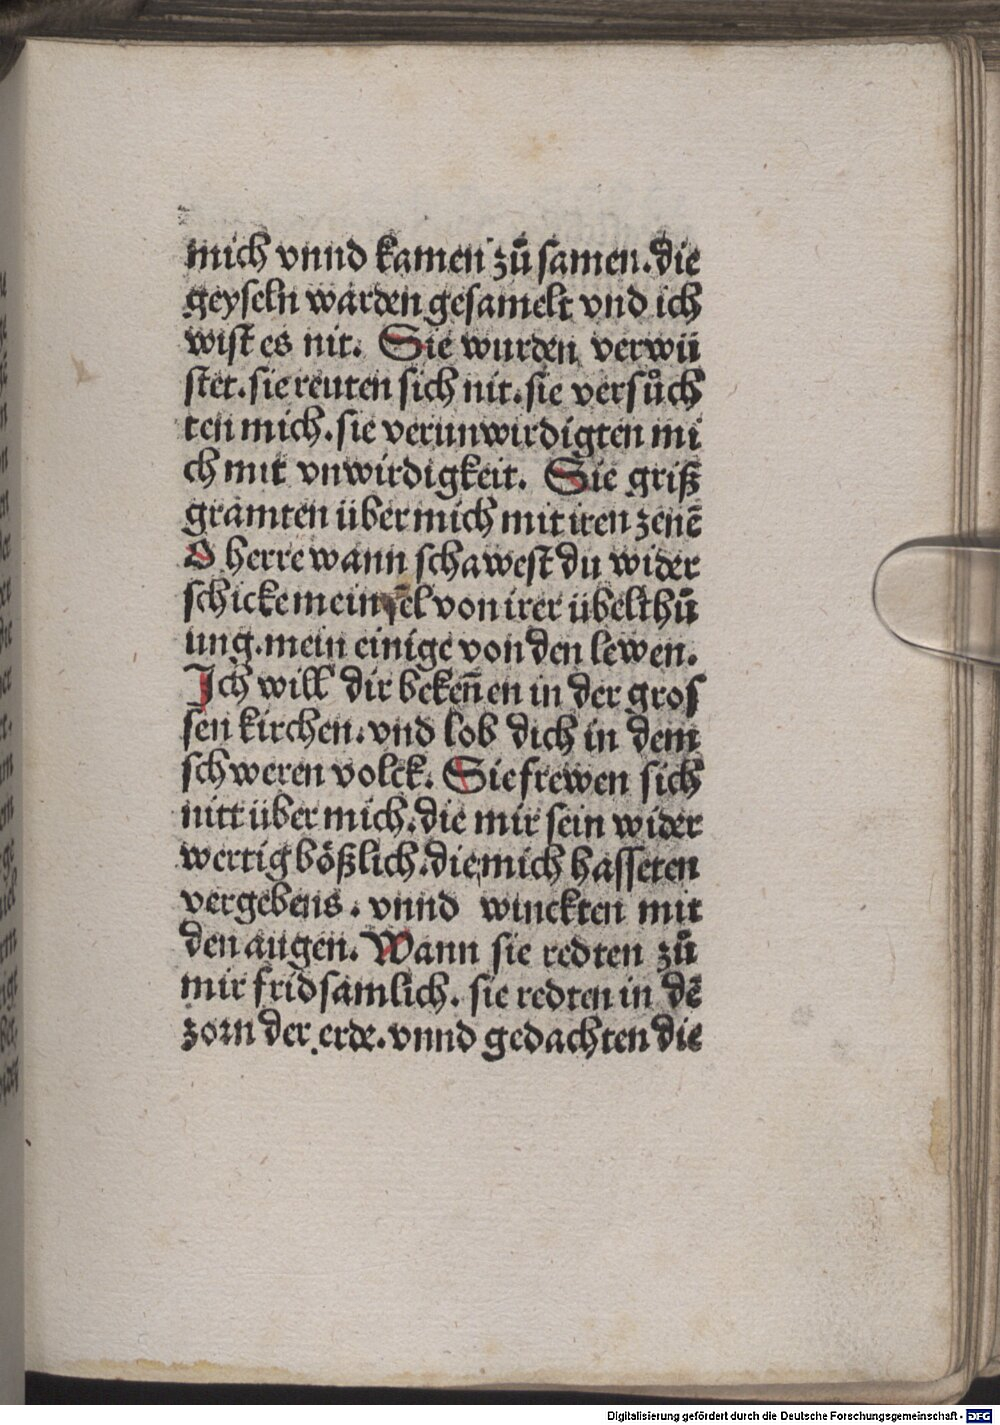 mich vnnd kamen zů samen. die
geyseln warden gesamelt vnd ich
wist es nit. Sie wurden verwü
stet. sie reuten sich nit. sie versůch
ten mich. sie verunwirdigten mi
ch mit vnwirdigkeit. Sie griß
gramten über mich mit iren zenē
O herre wann schawest du wider
schicke mein sel von irer übelthů
ung. mein einige von den lewen.
Ich will dir bekeñen in der gros
sen kirchen. vnd lob dich in dem
schweren volck. Sie frewen sich
nitt über mich. die mir sein wider
wertig bößlich. die mich hasseten
vergebens. vnnd winckten mit
den augen. Wann sie redten zů
mir fridsamlich. sie redten in dē
zorn der erde. vnnd gedachten die
Digitalisierung gefördert durch die Deutsche Forschungsgemeinschaft - DFG